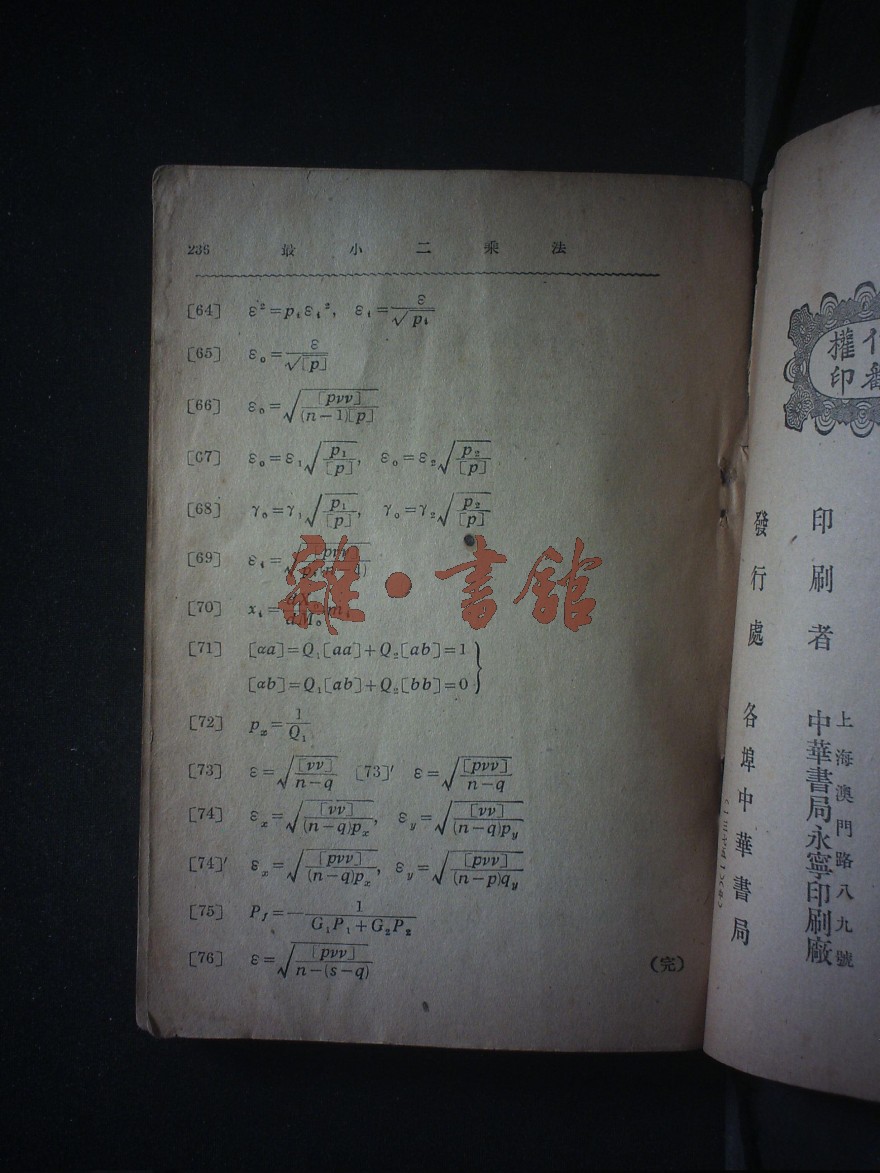 236 最小二乘法
[64] ε²=pᵢεᵢ², εᵢ=ε/√pᵢ
[65] ε₀=ε/√[p]
[66] ε₀=√([pvv]/(n-1)[p])
[67] ε₀=ε₁√(p₁/[p]), ε₀=ε₂√(p₂/[p])
[68] γ₀=γ₁√(p₁/[p]), γ₀=γ₂√(p₂/[p])
[69] εᵢ=
[70] xᵢ=
[71] [αa]=Q₁[aa]+Q₂[ab]=1
[αb]=Q₁[ab]+Q₂[bb]=0}
[72] pₓ=1/Q₁
[73] ε=√([vv]/n-q) [73]′ ε=√([pvv]/n-q)
[74] εₓ=√([vv]/(n-q)pₓ), ε_y=√([vv]/(n-q)p_y)
[74]′ εₓ=√([pvv]/(n-q)pₓ), ε_y=√([pvv]/(n-p)q_y)
[75] P_f=-1/(G₁P₁+G₂P₂)
[76] ε=√([pvv]/n-(s-q))
(完)
雜·書館
權
印
印刷者
上海澳門路八九號
中華書局永寧印刷廠
發行處 各埠中華書局